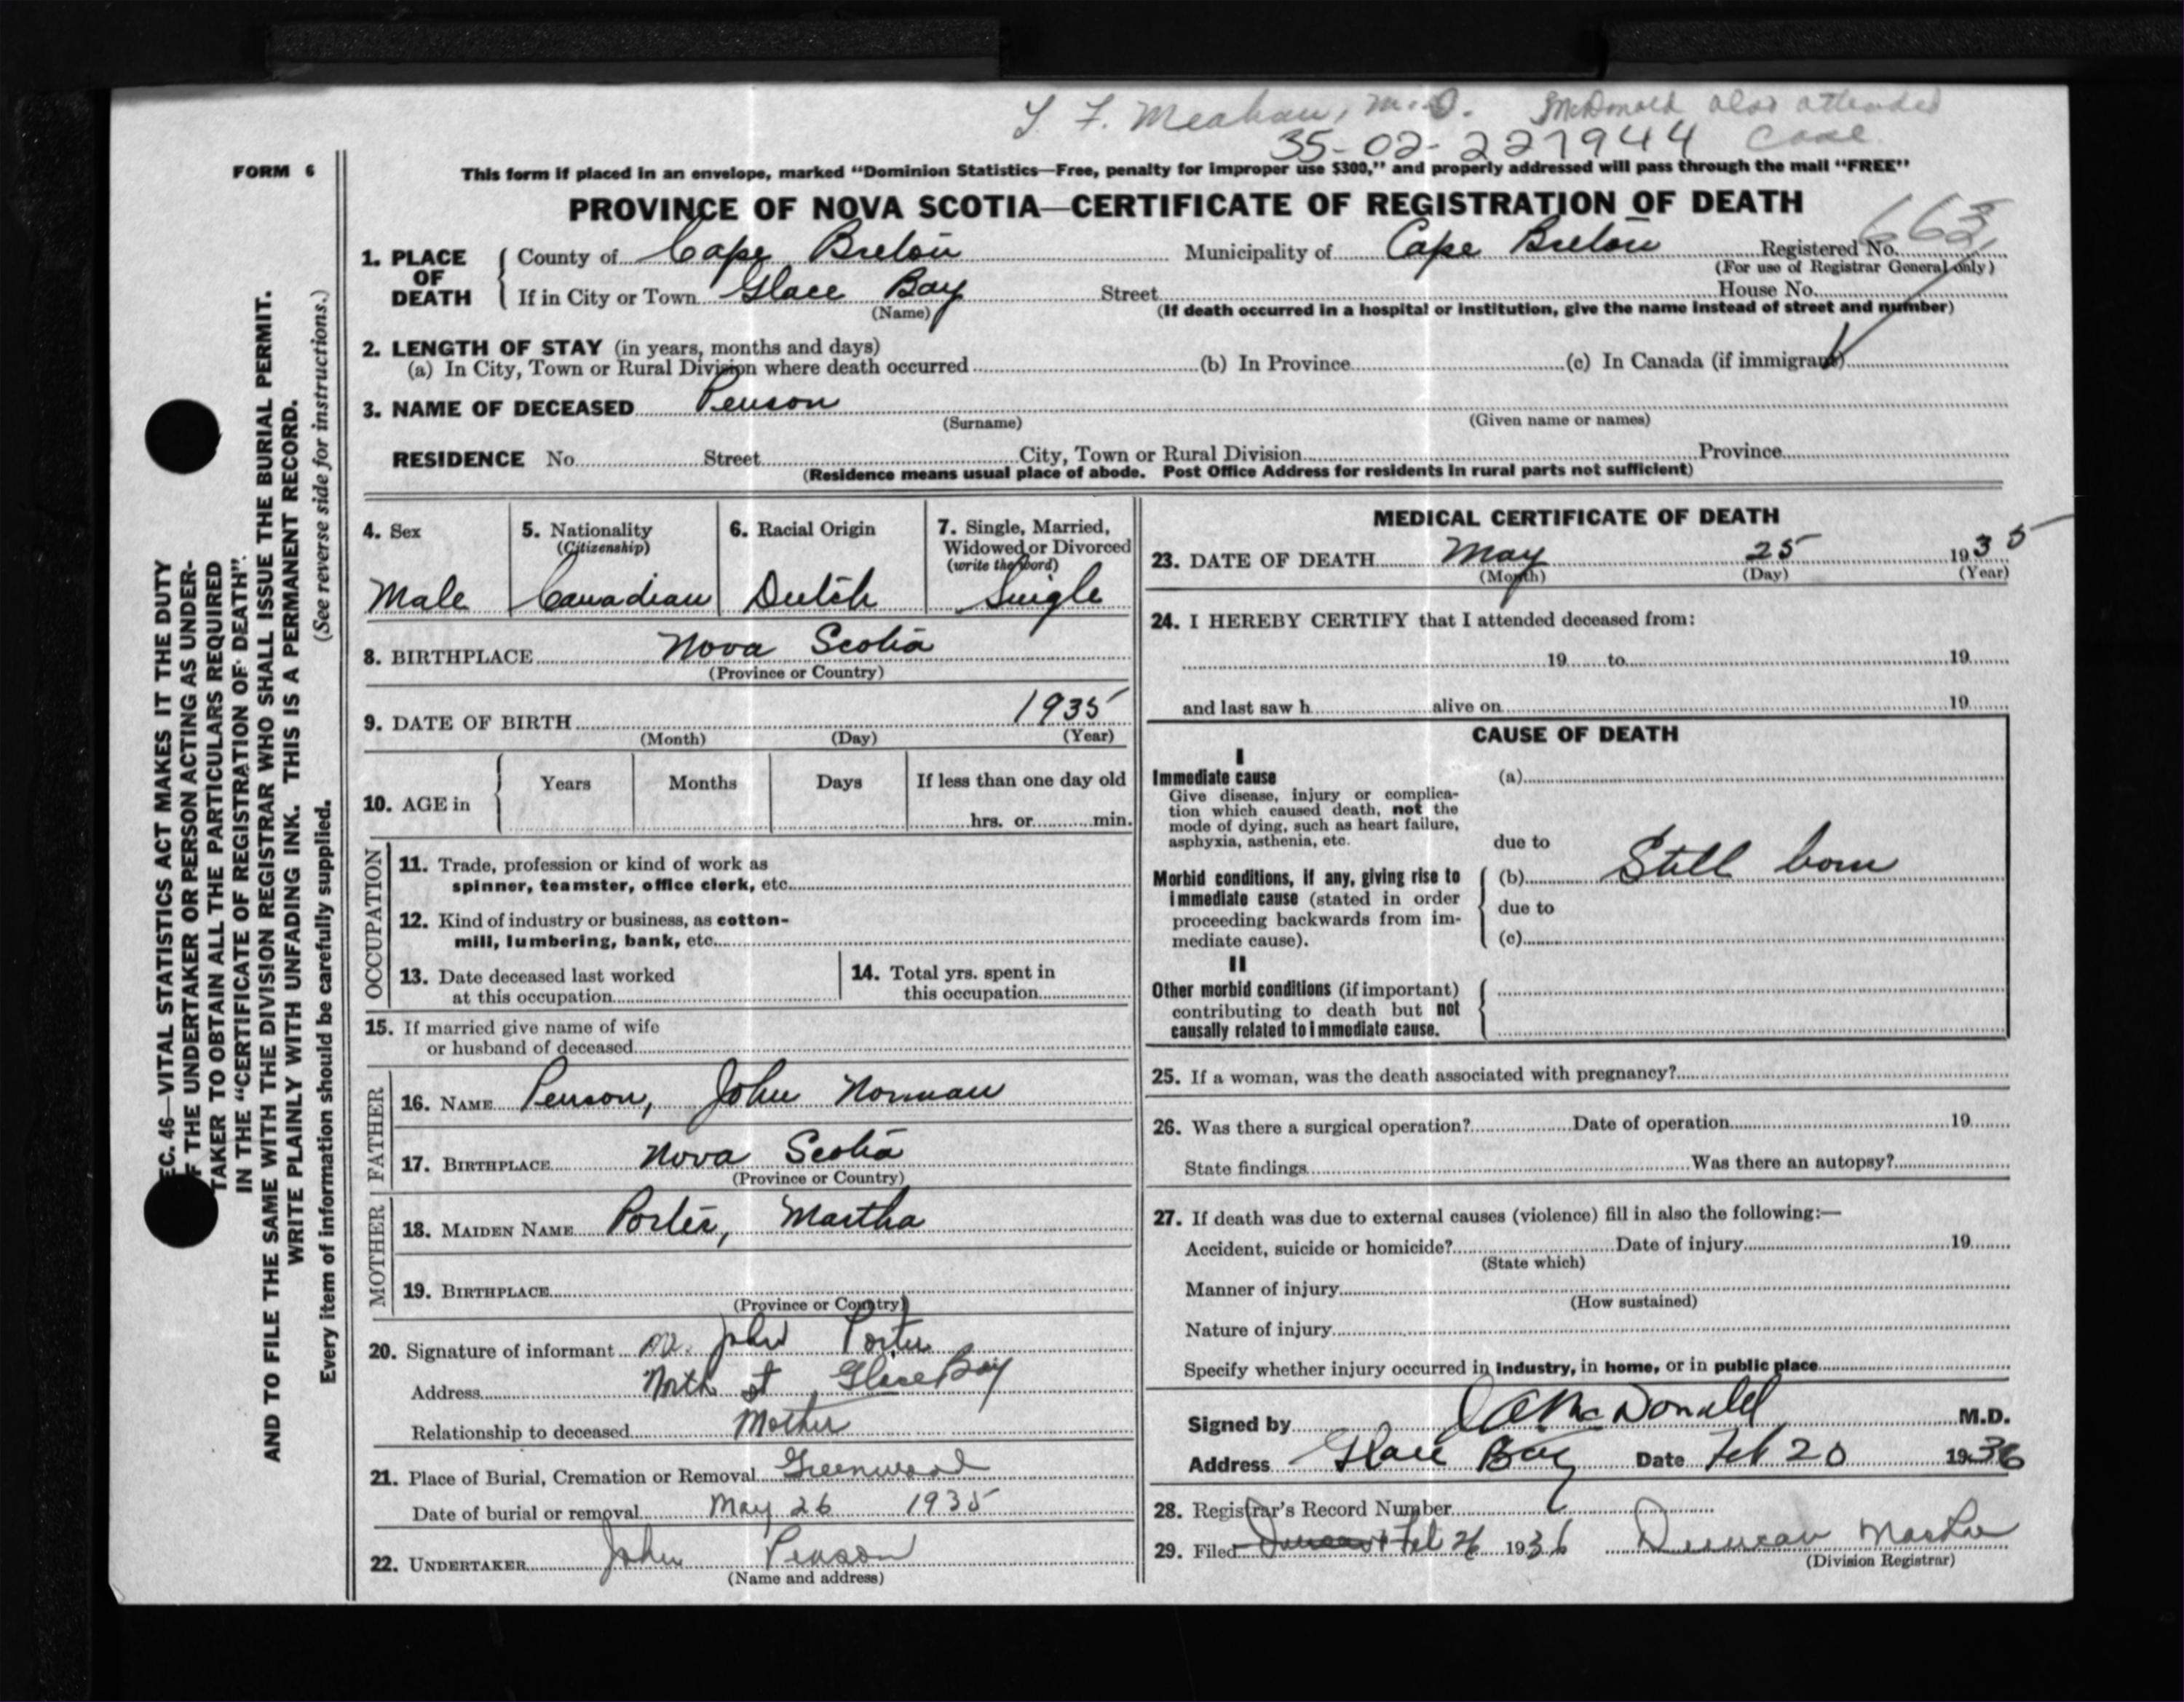 T. F. Meahan, M.D. McDonald also attended
35-02-227944 case.
FORM 6
This form if placed in an envelope, marked "Dominion Statistics—Free, penalty for improper use $300," and properly addressed will pass through the mail "FREE"
PROVINCE OF NOVA SCOTIA—CERTIFICATE OF REGISTRATION OF DEATH
663
1. PLACE OF DEATH County of Cape Breton Municipality of Cape Breton Registered No.
(For use of Registrar General only)
If in City or Town Glace Bay Street House No.
(Name) (If death occurred in a hospital or institution, give the name instead of street and number)
2. LENGTH OF STAY (in years, months and days)
(a) In City, Town or Rural Division where death occurred (b) In Province (c) In Canada (if immigrant)
3. NAME OF DECEASED Penson
(Surname) (Given name or names)
RESIDENCE No. Street City, Town or Rural Division Province
(Residence means usual place of abode. Post Office Address for residents in rural parts not sufficient)
4. Sex 5. Nationality 6. Racial Origin 7. Single, Married,
(Citizenship) Widowed or Divorced
(write the word)
Male Canadian Dutch Single
8. BIRTHPLACE Nova Scotia
(Province or Country)
9. DATE OF BIRTH 1935
(Month) (Day) (Year)
10. AGE in Years Months Days If less than one day old
hrs. or min.
OCCUPATION
11. Trade, profession or kind of work as
spinner, teamster, office clerk, etc.
12. Kind of industry or business, as cotton-
mill, lumbering, bank, etc.
13. Date deceased last worked
at this occupation
14. Total yrs. spent in
this occupation
15. If married give name of wife
or husband of deceased
FATHER
16. NAME Penson, John Norman
17. BIRTHPLACE Nova Scotia
(Province or Country)
MOTHER
18. MAIDEN NAME Porter, Martha
19. BIRTHPLACE
(Province or Country)
20. Signature of informant John Porter
Address North st Glace Bay
Relationship to deceased Mother
21. Place of Burial, Cremation or Removal Greenwood
Date of burial or removal May 26 1935
22. UNDERTAKER John Penson
(Name and address)
MEDICAL CERTIFICATE OF DEATH
23. DATE OF DEATH May 25 1935
(Month) (Day) (Year)
24. I HEREBY CERTIFY that I attended deceased from:
19 to 19
and last saw h alive on 19
CAUSE OF DEATH
I
Immediate cause (a)
Give disease, injury or complica-
tion which caused death, not the
mode of dying, such as heart failure,
asphyxia, asthenia, etc.
due to
Morbid conditions, if any, giving rise to (b) Still born
immediate cause (stated in order
proceeding backwards from im- due to
mediate cause). (c)
II
Other morbid conditions (if important)
contributing to death but not
causally related to immediate cause.
25. If a woman, was the death associated with pregnancy?
26. Was there a surgical operation? Date of operation 19
State findings Was there an autopsy?
27. If death was due to external causes (violence) fill in also the following:—
Accident, suicide or homicide? Date of injury 19
(State which)
Manner of injury
(How sustained)
Nature of injury
Specify whether injury occurred in industry, in home, or in public place
Signed by McDonald M.D.
Address Glace Bay Date Feb 20 1936
28. Registrar's Record Number
29. Filed Feb 26 1936 Duncan
(Division Registrar)
SEC. 46—VITAL STATISTICS ACT MAKES IT THE DUTY
OF THE UNDERTAKER OR PERSON ACTING AS UNDER-
TAKER TO OBTAIN ALL THE PARTICULARS REQUIRED
IN THE "CERTIFICATE OF REGISTRATION OF DEATH"
AND TO FILE THE SAME WITH THE DIVISION REGISTRAR WHO SHALL ISSUE THE BURIAL PERMIT.
WRITE PLAINLY WITH UNFADING INK. THIS IS A PERMANENT RECORD.
Every item of information should be carefully supplied. (See reverse side for instructions.)